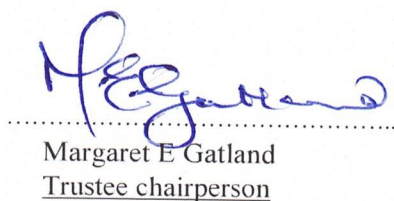 M E Gatland
Margaret E Gatland
Trustee chairperson